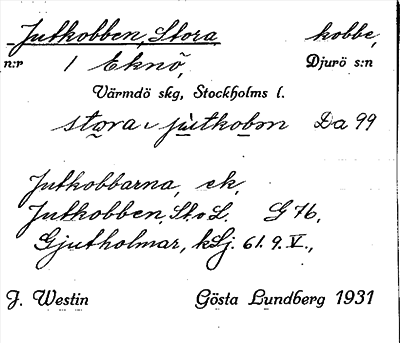 Jutkobben, Stora kobbe,
n:r 1 Eknö, Djurö s:n
Värmdö skg, Stockholms l.
stora jutkobm Da 99
Jutkobbarna, ek,
Jutkobben, St. o L. G 76,
Gjutholmar, kSj. 61. 9. V.,
J. Westin Gösta Lundberg 1931